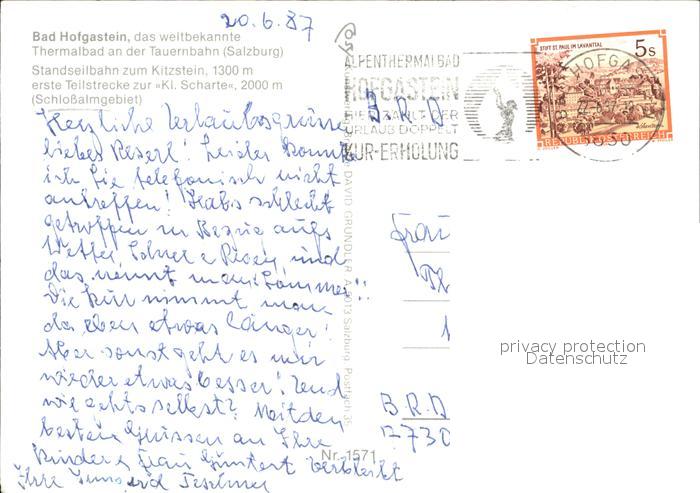 20.6.87
Bad Hofgastein, das weltbekannte
Thermalbad an der Tauernbahn (Salzburg)
Standseilbahn zum Kitzstein, 1300 m
erste Teilstrecke zur »Kl. Scharte«, 2000 m
(Schloßalmgebiet)
Herzliche Urlaubsgrüsse
liebes Reserl! Leider konnte
ich Sie telefonisch nicht
antreffen! Habs schlecht
getroffen in Bezug aufs
Wetter, Schnee + Regen, und
das nennt man Sommer!!
Die Kur nimmt man
da eben etwas länger!
Aber sonst geht es mir
wieder etwas besser! Und
wie gehts selbst? Mit den
besten Grüssen an Ihre
Kinder + Frau Güntert verbleibt
Ihre
ALPENTHERMALBAD
HOFGASTEIN
URLAUB DOPPELT
KUR-ERHOLUNG
STIFT ST. PAUL IM LAVANTTAL
5 s
REPUBLIK ÖSTERREICH
HOFGA
5630
B.R.D
Frau
B.R.D
DAVID GRÜNDLER, A-5013 Salzburg, Postfach 36
Nr. 1571
privacy protection
Datenschutz